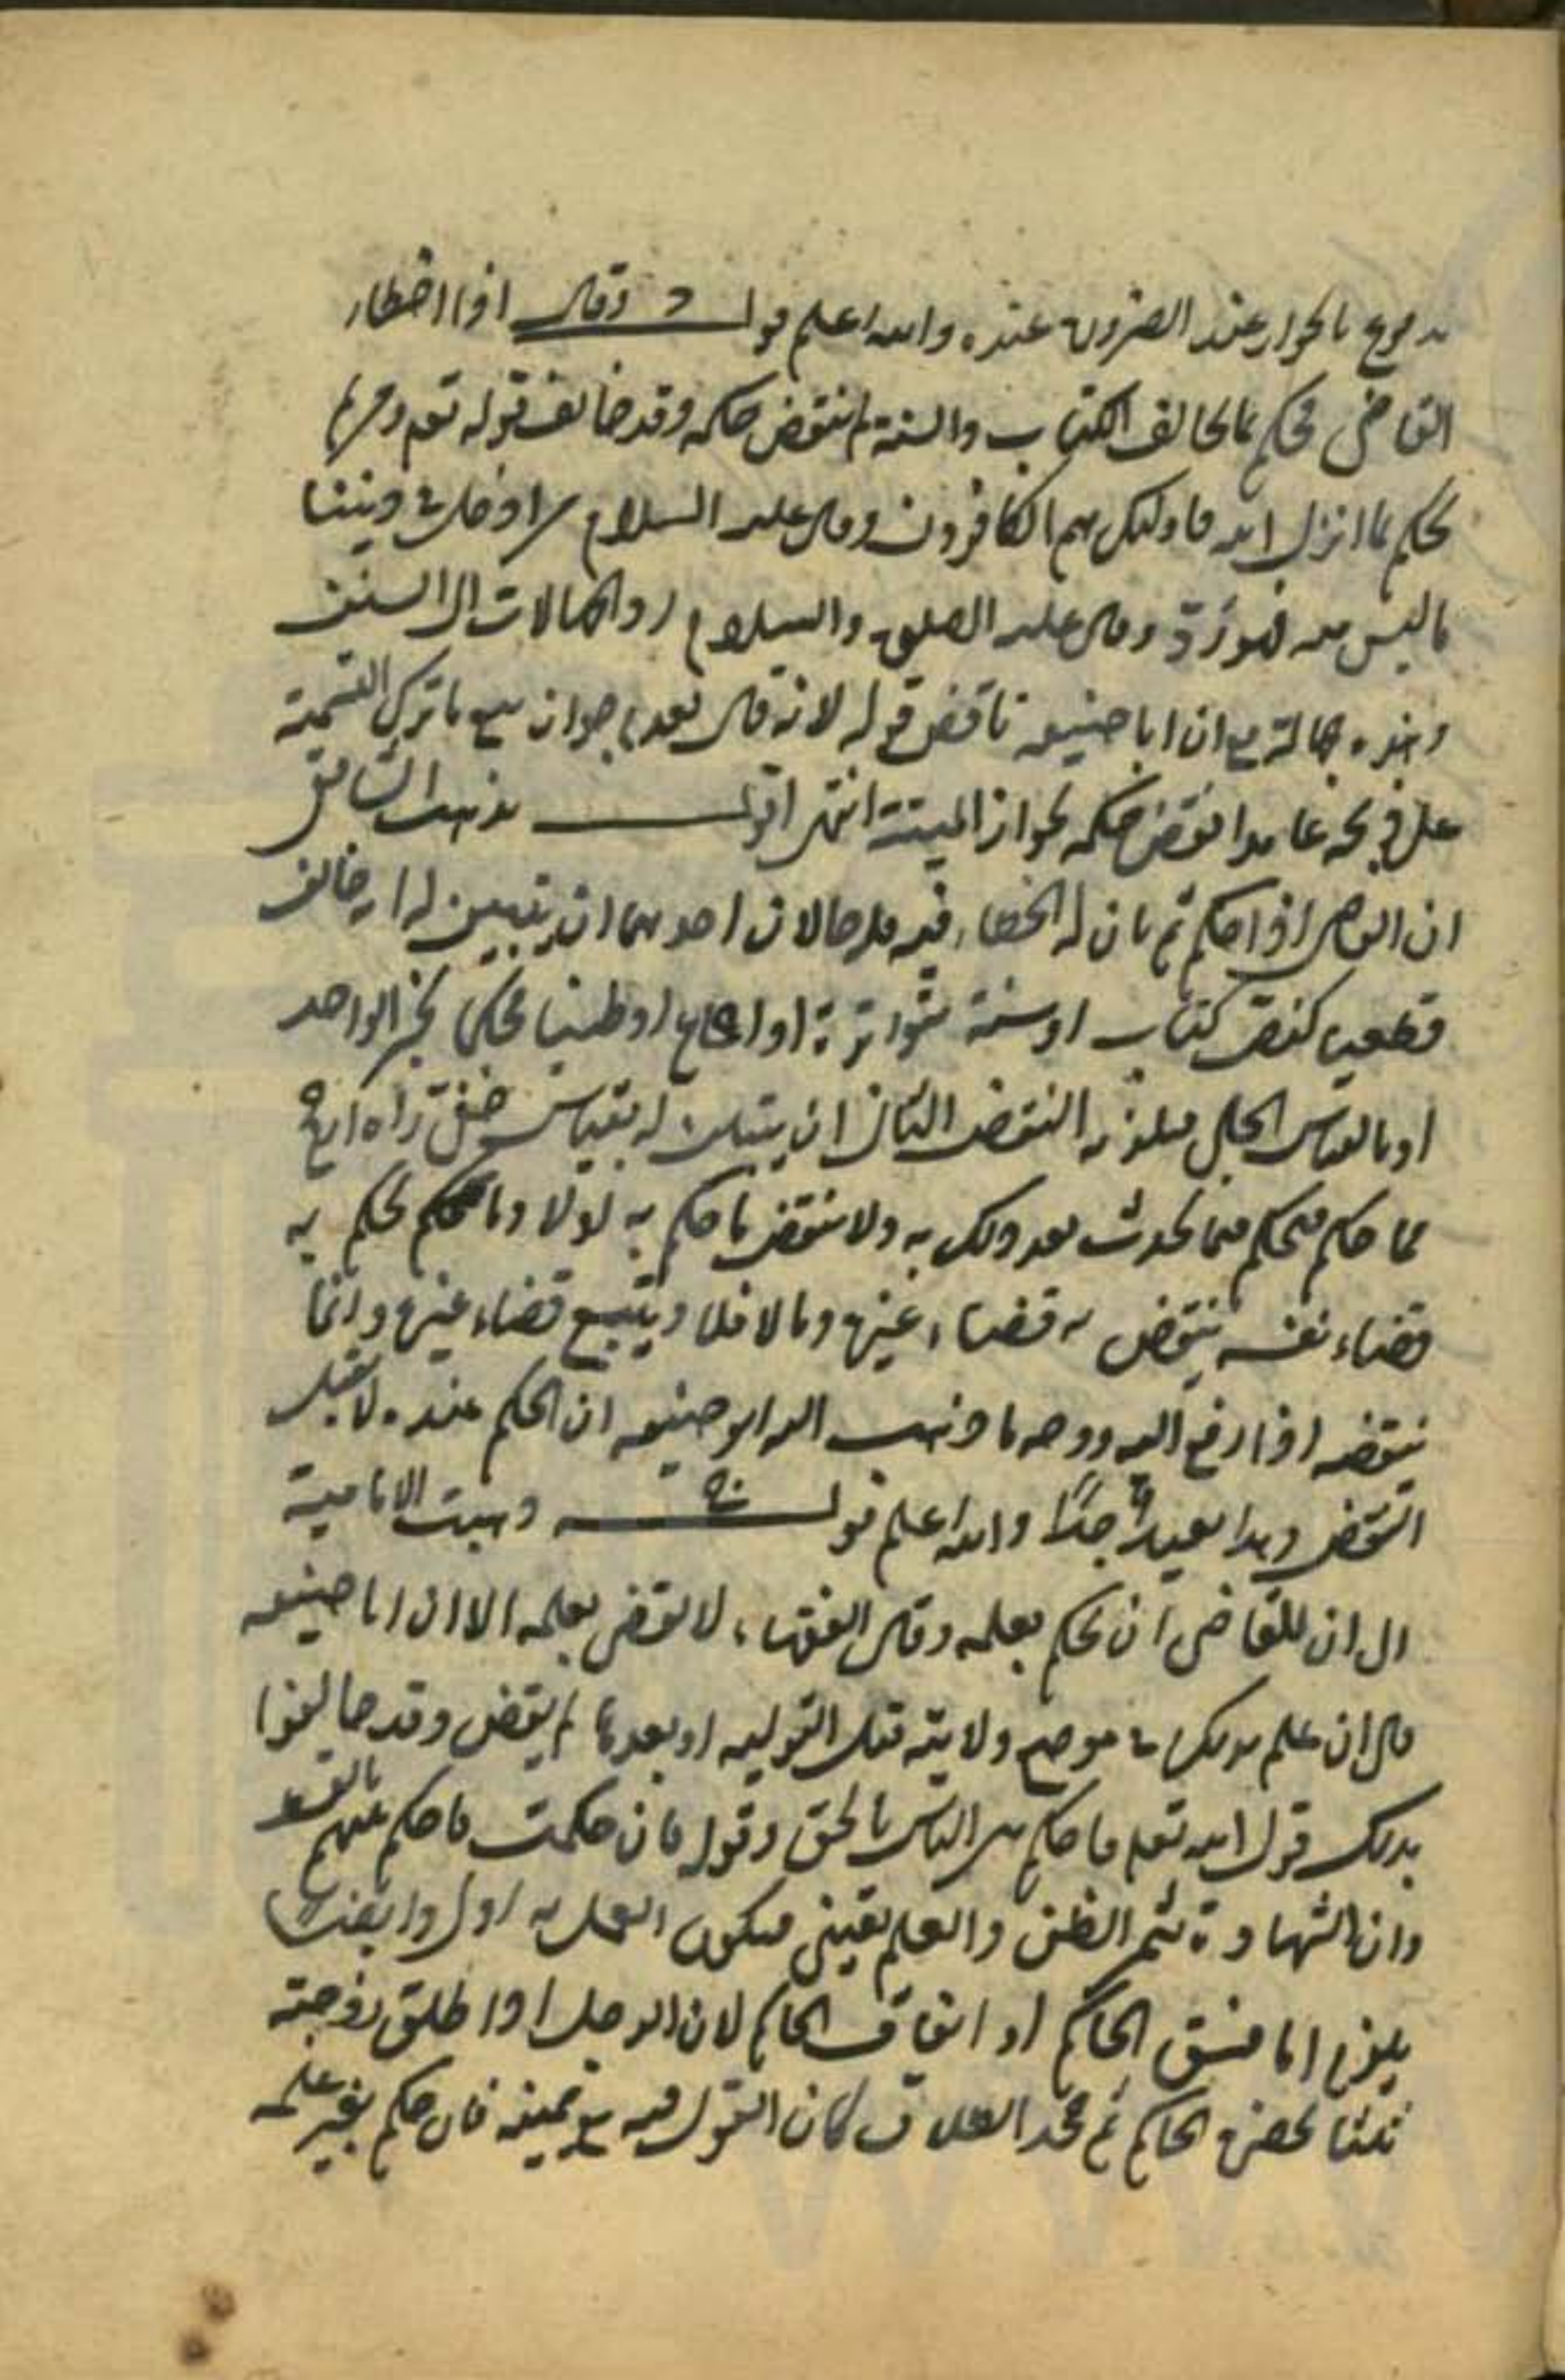 بالجواز عند الضرورة عنده والله اعلم قوله د وقال اذا اخطاء
القاضى فحكم بما يخالف الكتاب والسنة لم ينقض حكمه وقد خالف قوله تعم ومن لم
يحكم بما انزل الله فاولئك هم الكافرون وقال عليه السلام من ادخل في ديننا
ما ليس منه فهو ردّ وقال عليه الصلوة والسلام ردوا الجهالات الى السنن
وهذه جهالة مع ان ابا حنيفه ناقض قوله لانه قال لو حكم بجواز بيع ما ترك التسمية
على ذبحه عامدا نقض حكمه لجواز الميتة انتهى اقول مذهب الشافعى
ان القاضى اذا حكم ثم بان له الخطاء فيه فله حالان احدهما ان يتبين له انه خالف
قطعيا كنص كتاب او سنة متواترة او اجماع او ظنيا محكما بخبر الواحد
او بالقياس الجلى فيلزمه النقض الثانى ان يتبين له بقياس خفى رآه ارجح
مما حكم فيحكم فيما يحدث بعد ذلك به ولا ينقض ما حكم به اولا وما حكم به
قضاء نفسه ينقض به قضاء غيره وما لا فلا ويتبع قضاء غيره وانما
ينقضه اذا رفع اليه ووجه ما ذهب اليه ابو حنيفه ان الحكم عنده لا يقبل
النقض وهذا بعيد جدًا والله اعلم قوله ذهبت الامامية
الى ان للقاضى ان يحكم بعلمه وقال الفقهاء لا يقضى بعلمه الا ان ابا حنيفه
قال ان علم بذلك في موضع ولايته قبل التولية او بعدها لم يقض وقد خالفوا
بذلك قول الله تعم فاحكم بين الناس بالحق وقوله فان حكمت فاحكم بينهم بالقسط
وان الشهادة تثمر الظن والعلم يقينى فيكون العمل به اولى وايضا
يلزم اما فسق الحاكم او ايقاف الحاكم لان الرجل اذا طلق زوجته
ثلثا بحضرة الحاكم ثم جحد الطلاق كان القول قوله مع يمينه فان حكم بغير علمه